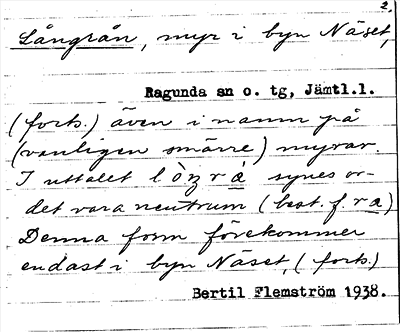 2.
Långrån, myr i byn Näset,
Ragunda sn o. tg, Jämtl.l.
(forts.) även i namn på
(vanligen smärre) myrar.
I uttalet synes or-
det vara neutrum (best. f. ra)
Denna form förekommer
endast i byn Näset, (forts.)
Bertil Flemström 1938.